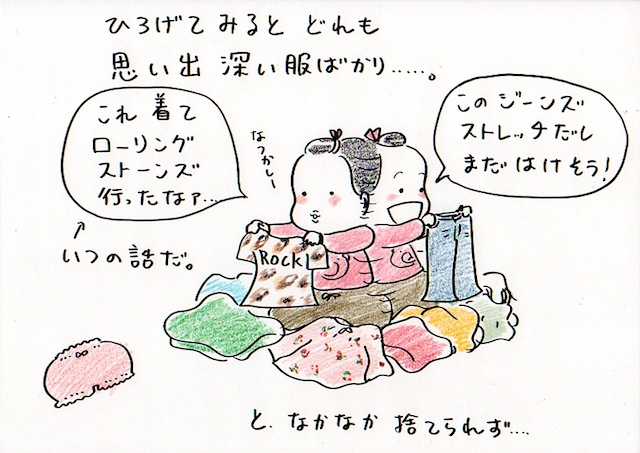 ひろげてみると どれも
思い出 深い服ばかり.....。
これ 着て
ローリング
ストーンズ
行ったなァ...
いつの話だ。
なつかしー
このジーンズ
ストレッチだし
まだはけそう!
ROCK!
と、なかなか 捨てられず....